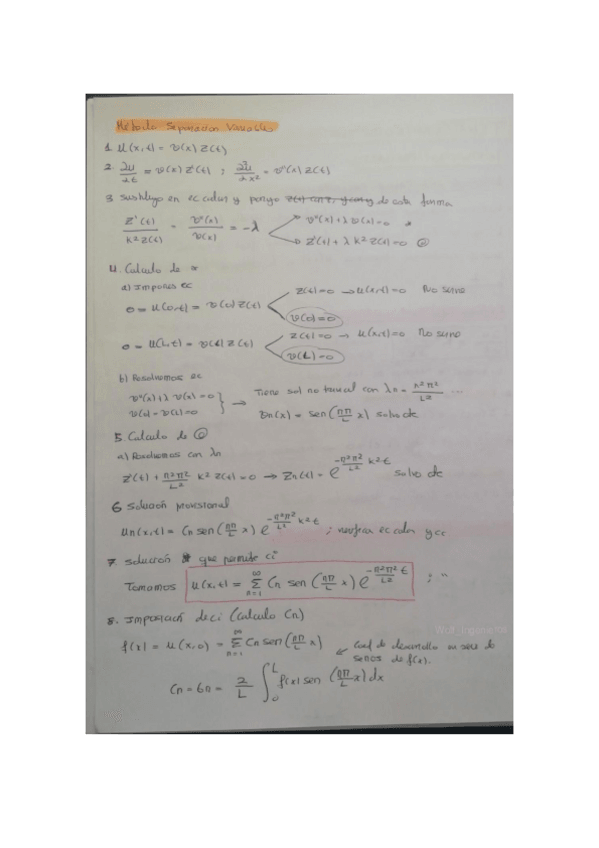 Método Separación Variables
1. u(x,t) = v(x) z(t)
2. ∂u/∂t = v(x) z'(t) ; ∂²u/∂x² = v''(x) z(t)
3. Sustituyo en ec calor y pongo de esta forma
z'(t)/k² z(t) = v''(x)/v(x) = -λ
v''(x) + λ v(x) = 0 *
z'(t) + λ k² z(t) = 0 @
4. Calculo de *
a) Impones cc
0 = u(0,t) = v(0) z(t)
z(t) = 0 → u(x,t) = 0 No sirve
v(0) = 0
0 = u(L,t) = v(L) z(t)
z(t) = 0 → u(x,t) = 0 No sirve
v(L) = 0
b) Resolvemos ec
v''(x) + λ v(x) = 0
v(0) = v(L) = 0
→ Tiene sol no trivial con λn = n²π²/L² ...
vn(x) = sen(nπ/L x) salvo cte
5. Calculo de @
a) Resolvemos con λn
z'(t) + n²π²/L² k² z(t) = 0 → zn(t) = e^(-n²π²/L² k² t) salvo cte
6. Solución provisional
un(x,t) = Cn sen(nπ/L x) e^(-n²π²/L² k² t) ; verifica ec calor y cc
7. Solución que permite ci
Tomamos u(x,t) = ∑_{n=1}^∞ Cn sen(nπ/L x) e^(-n²π²/L² t) ; "
8. Imposición de ci (Calculo Cn)
f(x) = u(x,0) = ∑_{n=1}^∞ Cn sen(nπ/L x)
← Coef de desarrollo en serie de
senos de f(x).
Cn = bn = 2/L ∫_0^L f(x) sen(nπ/L x) dx